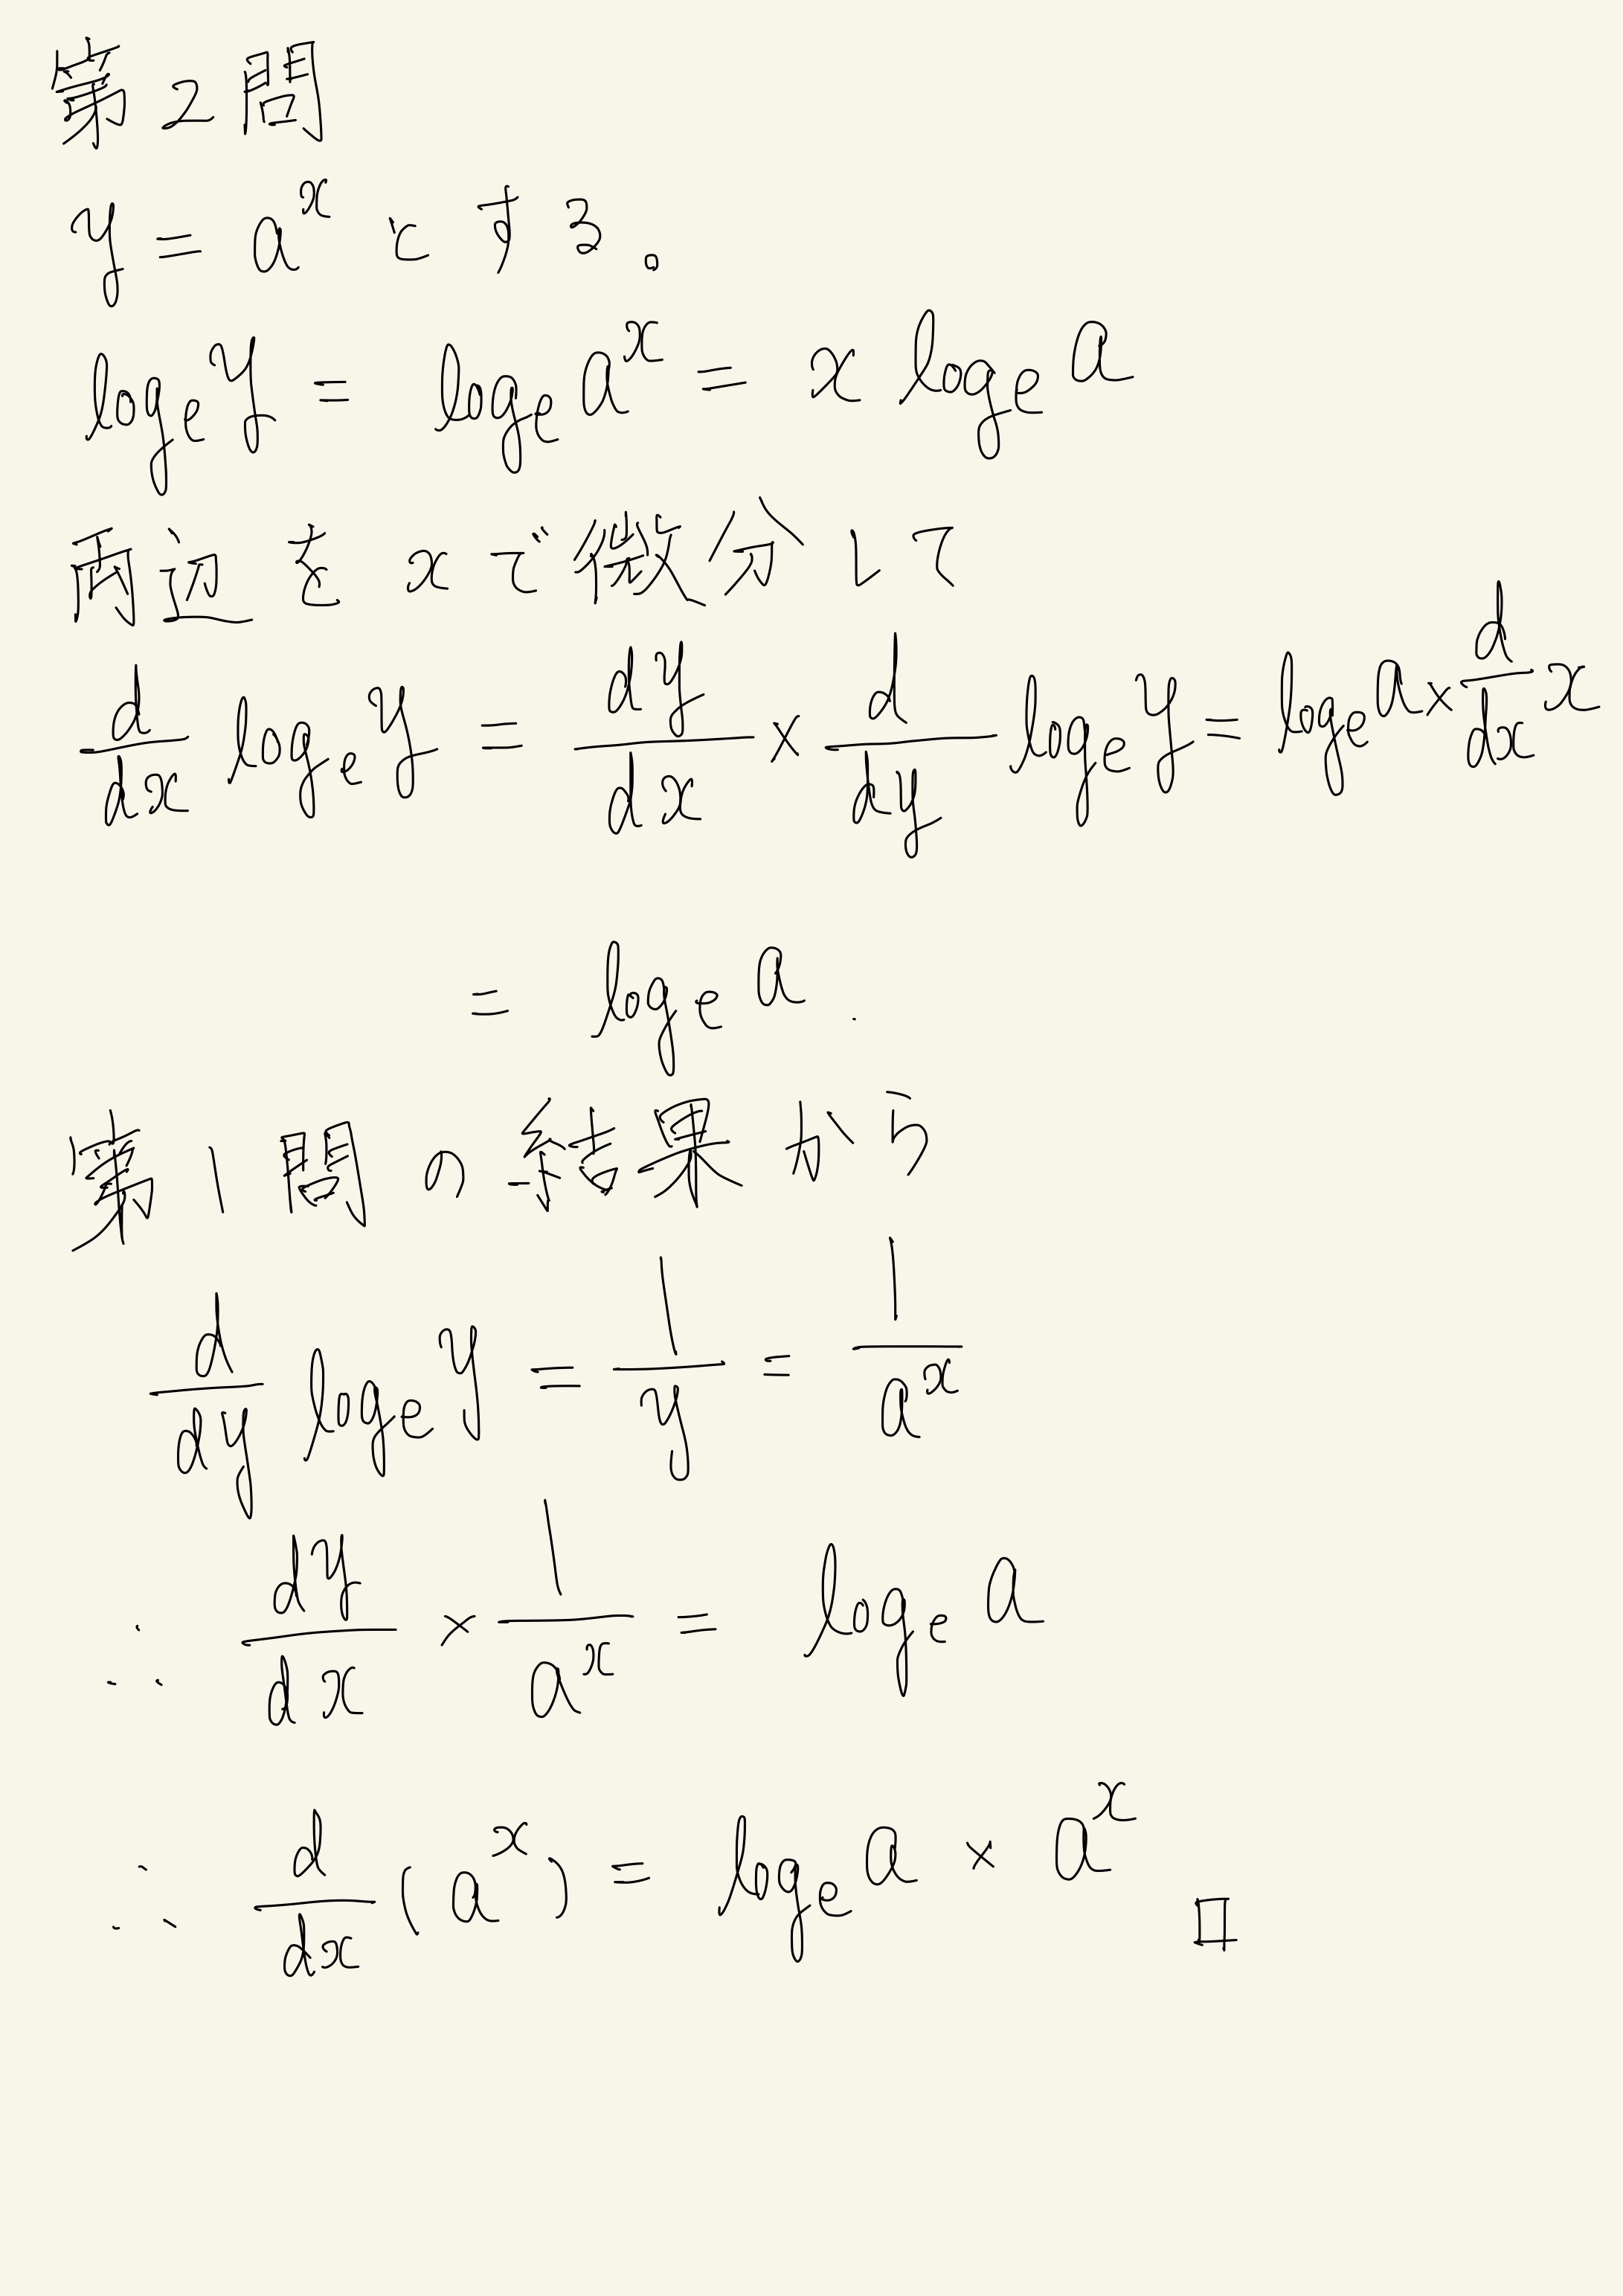 第2問
y = a^x とする。
log_e y = log_e a^x = x log_e a
両辺を x で微分して
d/dx log_e y = dy/dx × d/dy log_e y = log_e a × d/dx x
= log_e a .
第1問の結果から
d/dy log_e y = 1/y = 1/a^x
∴ dy/dx × 1/a^x = log_e a
∴ d/dx (a^x) = log_e a × a^x □